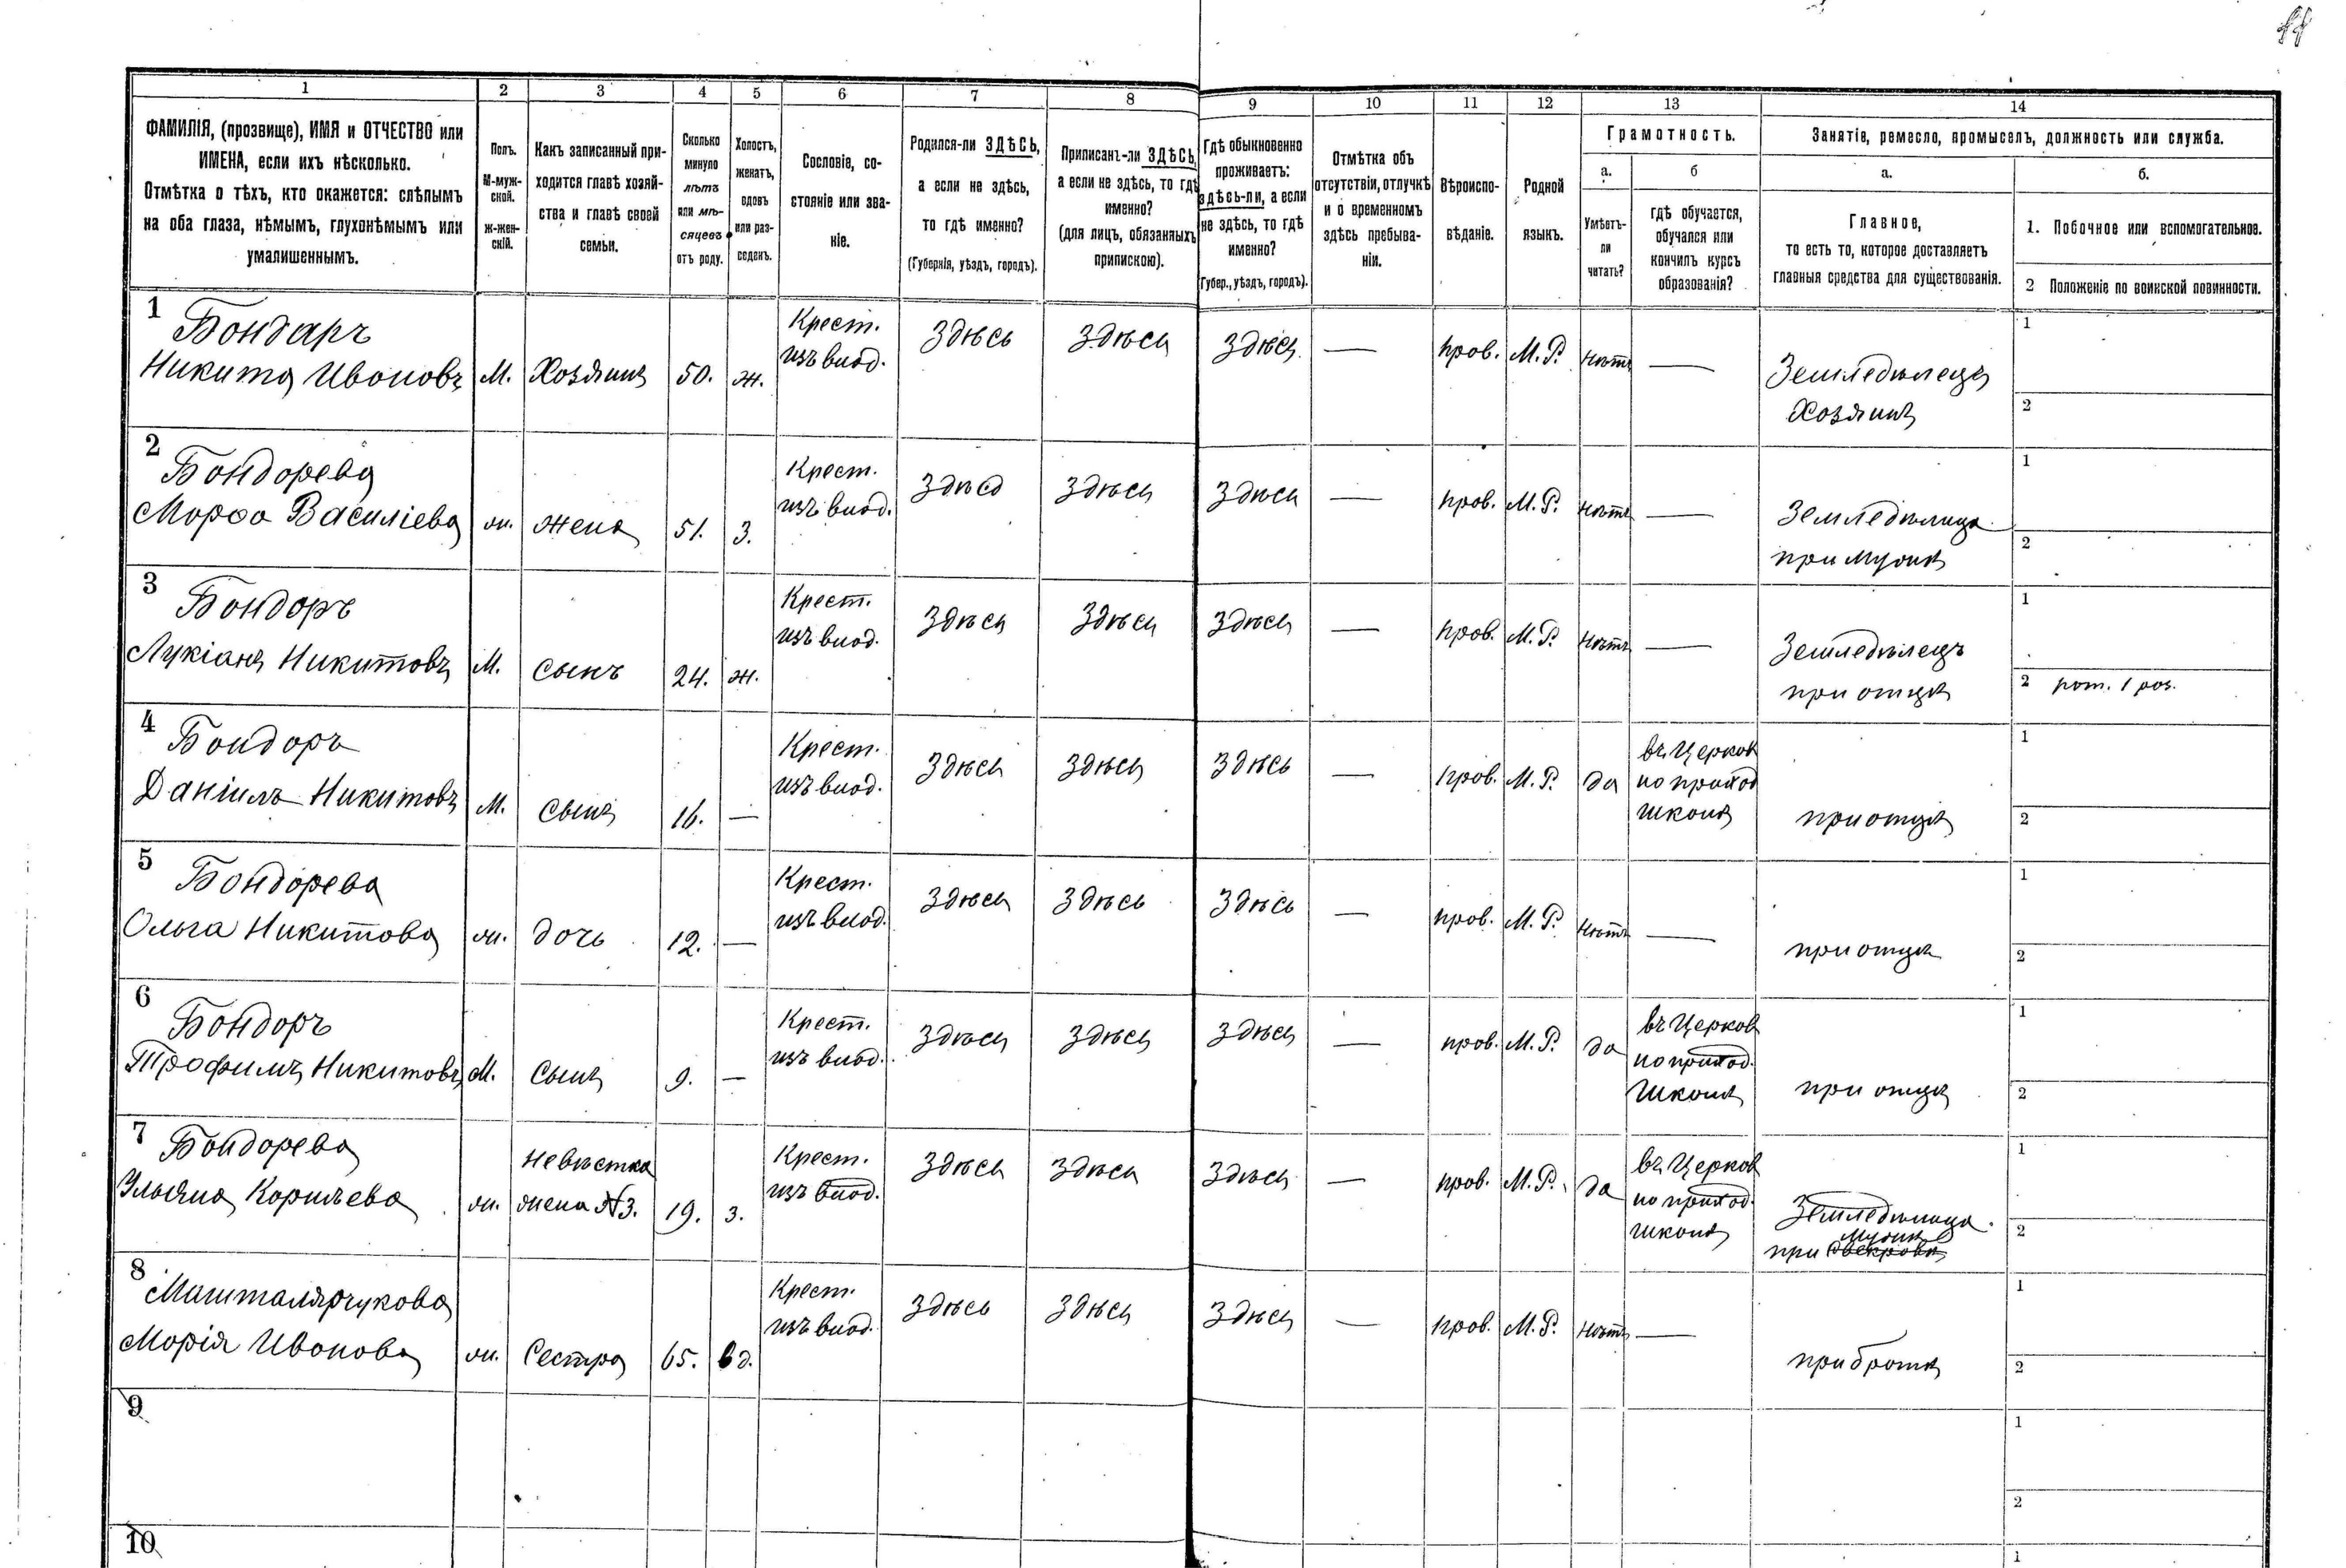 1 2 3 4 5 6 7 8 9 10 11 12 13 14
ФАМИЛІЯ, (прозвище), ИМЯ и ОТЧЕСТВО или
ИМЕНА, если ихъ нѣсколько.
Отмѣтка о тѣхъ, кто окажется: слѣпымъ
на оба глаза, нѣмымъ, глухонѣмымъ или
умалишеннымъ.
Полъ.
М-муж-
ской.
Ж-жен-
скій.
Какъ записанный при-
ходится главѣ хозяй-
ства и главѣ своей
семьи.
Сколько
минуло
лѣтъ
или мѣ-
сяцевъ
отъ роду.
Холостъ,
женатъ,
вдовъ
или раз-
веденъ.
Сословіе, со-
стояніе или зва-
ніе.
Родился-ли ЗДѢСЬ,
а если не здѣсь,
то гдѣ именно?
(Губернія, уѣздъ, городъ).
Приписанъ-ли ЗДѢСЬ,
а если не здѣсь, то гдѣ
именно?
(для лицъ, обязанныхъ
припискою).
Гдѣ обыкновенно
проживаетъ:
здѣсь-ли, а если
не здѣсь, то гдѣ
именно?
Губер., уѣздъ, городъ).
Отмѣтка объ
отсутствіи, отлучкѣ
и о временномъ
здѣсь пребыва-
ніи.
Вѣроиспо-
вѣданіе.
Родной
языкъ.
Грамотность.
а.
Умѣетъ-
ли
читать?
б
гдѣ обучается,
обучался или
кончилъ курсъ
образованія?
Занятіе, ремесло, промыселъ, должность или служба.
а.
Главное,
то есть то, которое доставляетъ
главныя средства для существованія.
б.
1. Побочное или вспомогательное.
2 Положеніе по воинской повинности.
1
Бондаръ
Никита Ивановъ М. Хозяинъ 50. ж.
Крест.
изъ влад.
Здѣсь Здѣсь Здѣсь — прав. М. Р. нѣтъ —
Земледѣлецъ
Хозяинъ
1
2
2
Бондарева
Марфа Василіева ж. жена 51. з.
Крест.
изъ влад.
Здѣсь Здѣсь Здѣсь — прав. М. Р. нѣтъ —
Земледѣлица
при мужѣ
1
2
3
Бондаръ
Лукіанъ Никитовъ М. сынъ 24. ж.
Крест.
изъ влад.
Здѣсь Здѣсь Здѣсь — прав. М. Р. нѣтъ —
Земледѣлецъ
при отцѣ
1
2 рат. 1 раз.
4
Бондаръ
Даніилъ Никитовъ М. сынъ 16. —
Крест.
изъ влад.
Здѣсь Здѣсь Здѣсь — прав. М. Р. да
въ Церков
но приход
школѣ
при отцѣ
1
2
5
Бондарева
Ольга Никитова ж. дочь 12. —
Крест.
изъ влад.
Здѣсь Здѣсь Здѣсь — прав. М. Р. нѣтъ —
при отцѣ
1
2
6
Бондаръ
Трофимъ Никитовъ М. сынъ 9. —
Крест.
изъ влад.
Здѣсь Здѣсь Здѣсь — прав. М. Р. да
въ Церков
но приход.
школѣ
при отцѣ
1
2
7
Бондарева
Ульяна Корніева ж.
невѣстка
жена №3. 19. з.
Крест.
изъ влад.
Здѣсь Здѣсь Здѣсь — прав. М. Р. да
въ Церков
но приход.
школѣ
Земледѣлица
мужѣ
при свекровѣ
1
2
8
Машталярчукова
Марія Иванова ж. Сестра 65. вд.
Крест.
изъ влад.
Здѣсь Здѣсь Здѣсь — прав. М. Р. нѣтъ —
при братѣ
1
2
9
1
2
10
1